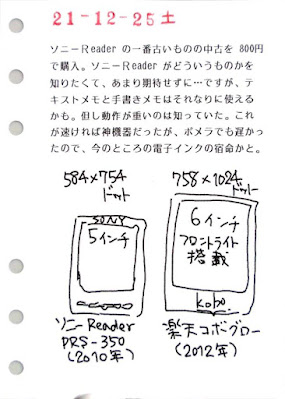 21-12-25土
ソニーReader の一番古いものの中古を 800円
で購入。ソニーReader がどういうものかを
知りたくて、あまり期待せずに…ですが、テ
キストメモと手書きメモはそれなりに使える
かも。但し動作が重いのは知っていた。これ
が速ければ神機器だったが、ポメラでも遅かっ
たので、今のところの電子インクの宿命かと。
584×754
ドット
758×1024
ドット
SONY
5インチ
6インチ
フロントライト
搭載
kobo
ソニーReader
PRS-350
(2010年)
楽天コボグロー
(2012年)